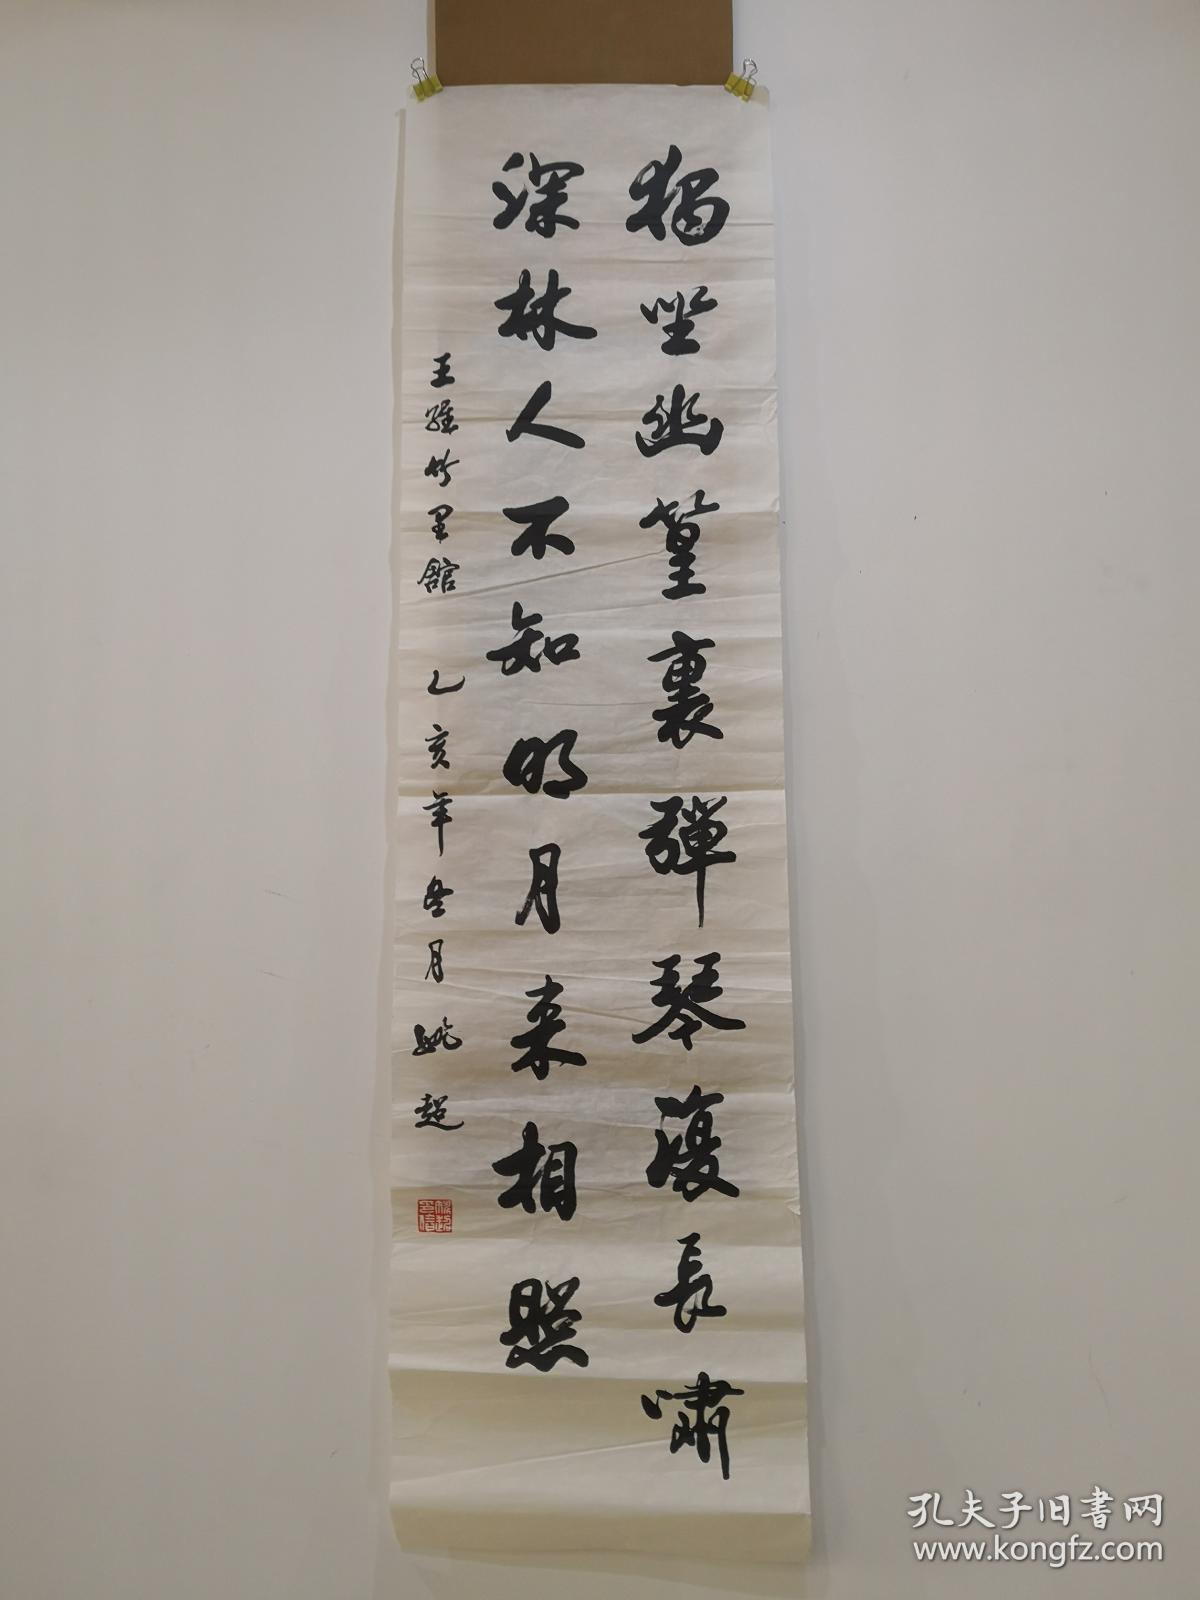 獨坐幽篁裏彈琴復長嘯
深林人不知明月来相照
王維竹里館 乙亥年冬月 姚超
姚超印信
孔夫子旧書网
www.kongfz.com